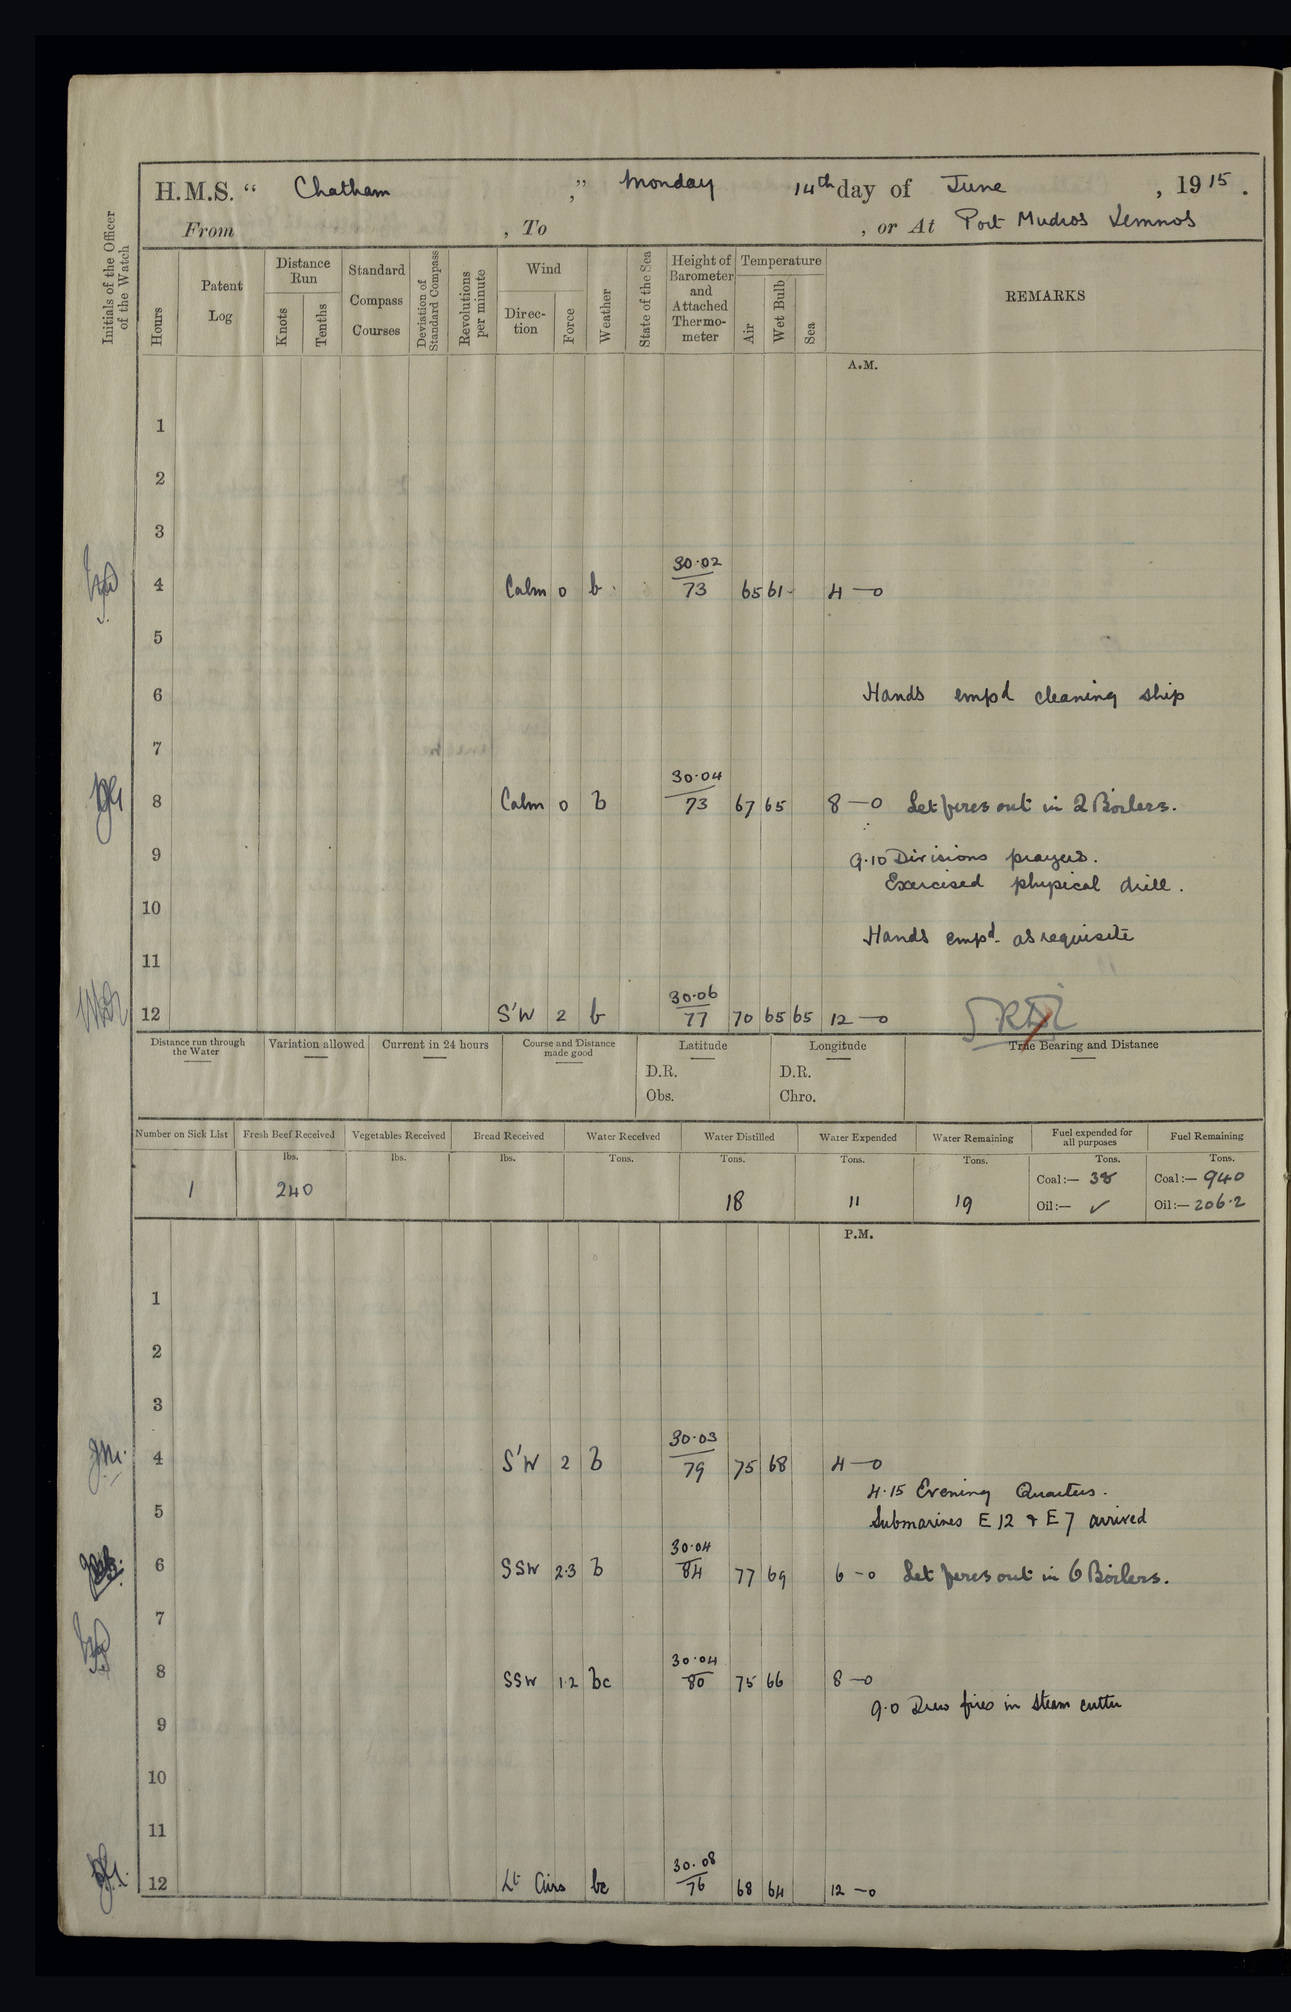 H.M.S. “ Chatham ,” Monday 14th day of June , 1915 .
From , To , or At Port Mudros Lemnos
Initials of the Officer of the Watch
Hours
Patent Log
Distance Run
Knots
Tenths
Standard Compass Courses
Deviation of Standard Compass
Revolutions per minute
Wind
Direction
Force
Weather
State of the Sea
Height of Barometer and Attached Thermometer
Temperature
Air
Wet Bulb
Sea
REMARKS
A.M.
1
2
3
4 Calm 0 b 30·02 73 65 61 4—0
5
6 Hands empd cleaning ship
7
8 Calm 0 b 30·04 73 67 65 8—0 Let fires out in 2 Boilers.
9 9·10 Divisions prayers.
Exercised physical drill.
10
Hands empd as requisite
11
12 S'W 2 b 30·06 77 70 65 65 12—0
Distance run through the Water
Variation allowed
Current in 24 hours
Course and Distance made good
Latitude
D.R.
Obs.
Longitude
D.R.
Chro.
True Bearing and Distance
Number on Sick List Fresh Beef Received Vegetables Received Bread Received Water Received Water Distilled Water Expended Water Remaining Fuel expended for all purposes Fuel Remaining
lbs. lbs. lbs. Tons. Tons. Tons. Tons. Tons. Tons.
1 240 18 11 19
Coal:— 38 Coal:— 940
Oil:— ✓ Oil:— 206·2
P.M.
1
2
3
4 S'W 2 b 30·03 79 75 68 4—0
4·15 Evening Quarters.
5 Submarines E 12 & E 7 arrived
6 SSW 2·3 b 30·04 84 77 69 6—0 Let fires out in 6 Boilers.
7
8 SSW 1·2 bc 30·04 80 75 66 8—0
9·0 Drew fires in steam cutter
9
10
11
12 Lt Airs bc 30·08 76 68 64 12—0